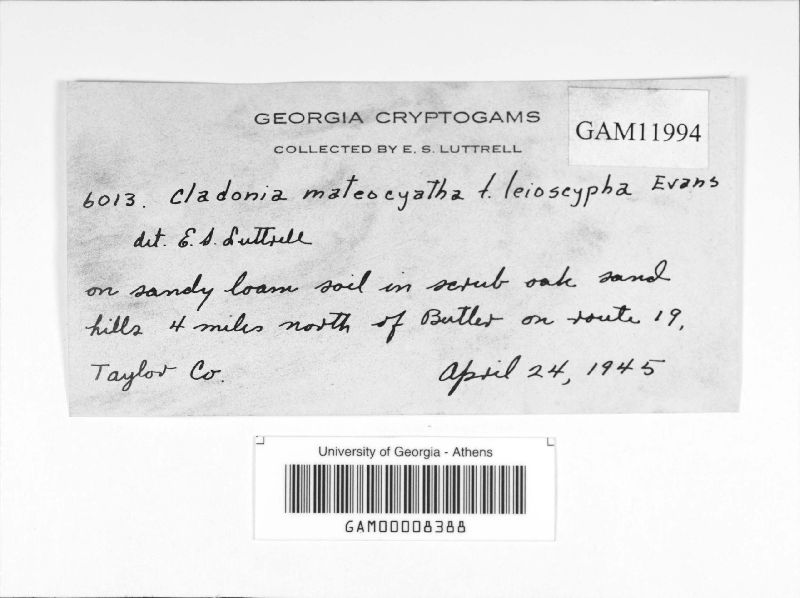 GEORGIA CRYPTOGAMS
GAM11994
COLLECTED BY E. S. LUTTRELL
6013. Cladonia mateocyatha f. leioscypha Evans
det. E. S. Luttrell
on sandy loam soil in scrub oak sand
hills 4 miles north of Butler on route 19,
Taylor Co. April 24, 1945
University of Georgia - Athens
GAM00008388